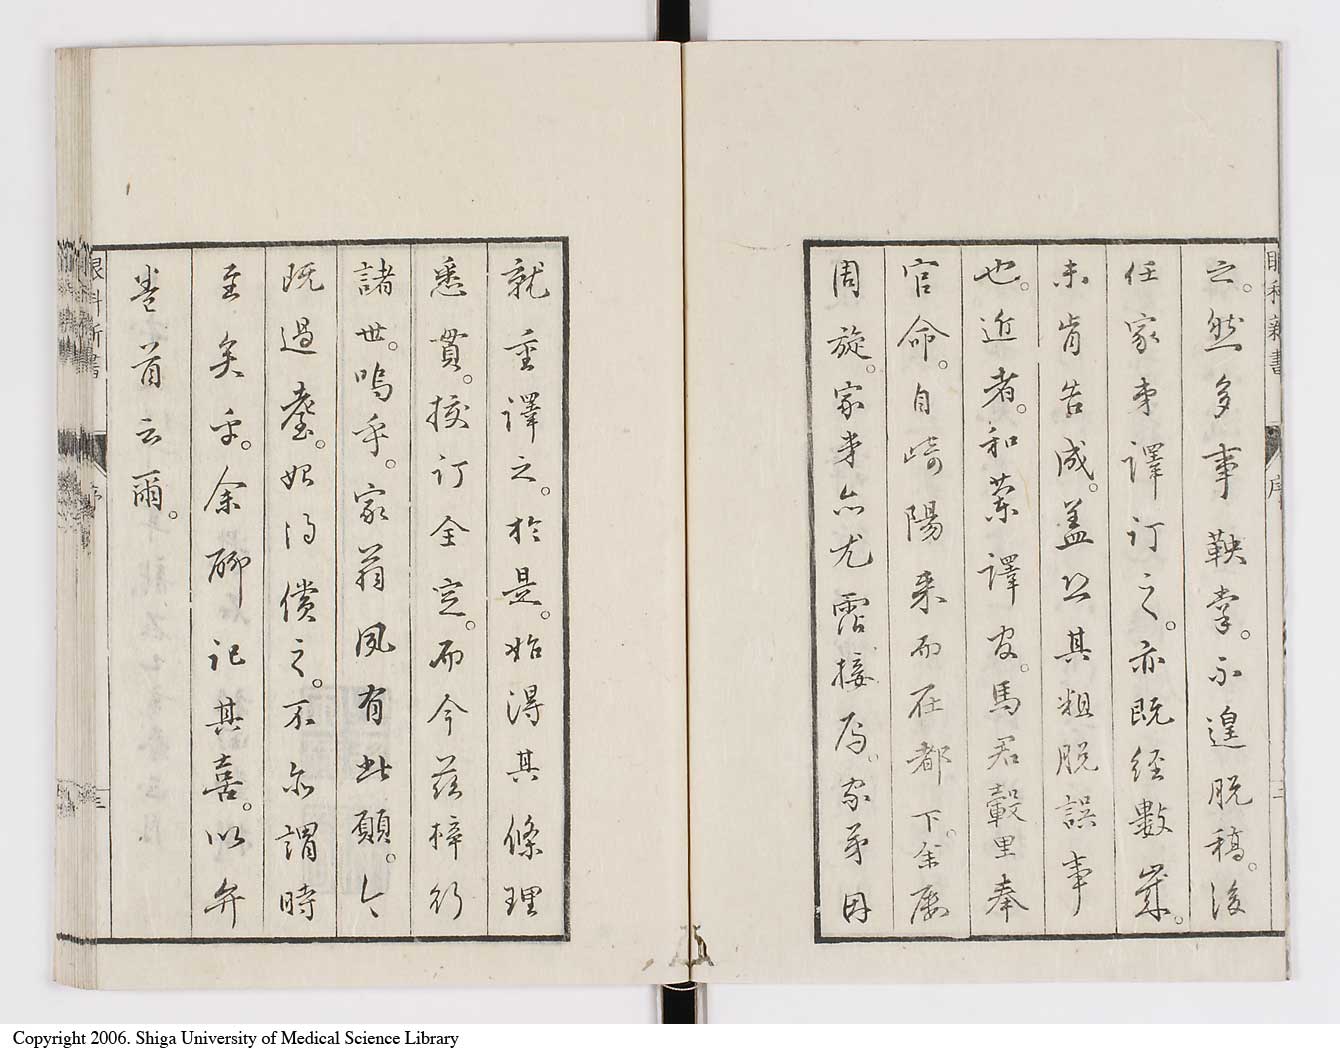 眼科新書
序
三
之。然多事鞅掌。不遑脱稿。後
任家弟譯訂之。亦既經數歲。
未肯告成。盖以其粗脱誤事
也。近者。和蘭譯官。馬君轂里奉
官命。自崎陽来而在都下。余屡
周旋。家弟亦尤霑接焉。家弟因
就重譯之。於是。始得其條理
悉貫。挍訂全定。而今茲梓行
諸世。嗚乎。家翁夙有此願。今
既過臺。始得償之。不亦謂時
至矣乎。余聊記其喜。以弁
巻首云爾。
眼科新書
序
三
Copyright 2006. Shiga University of Medical Science Library